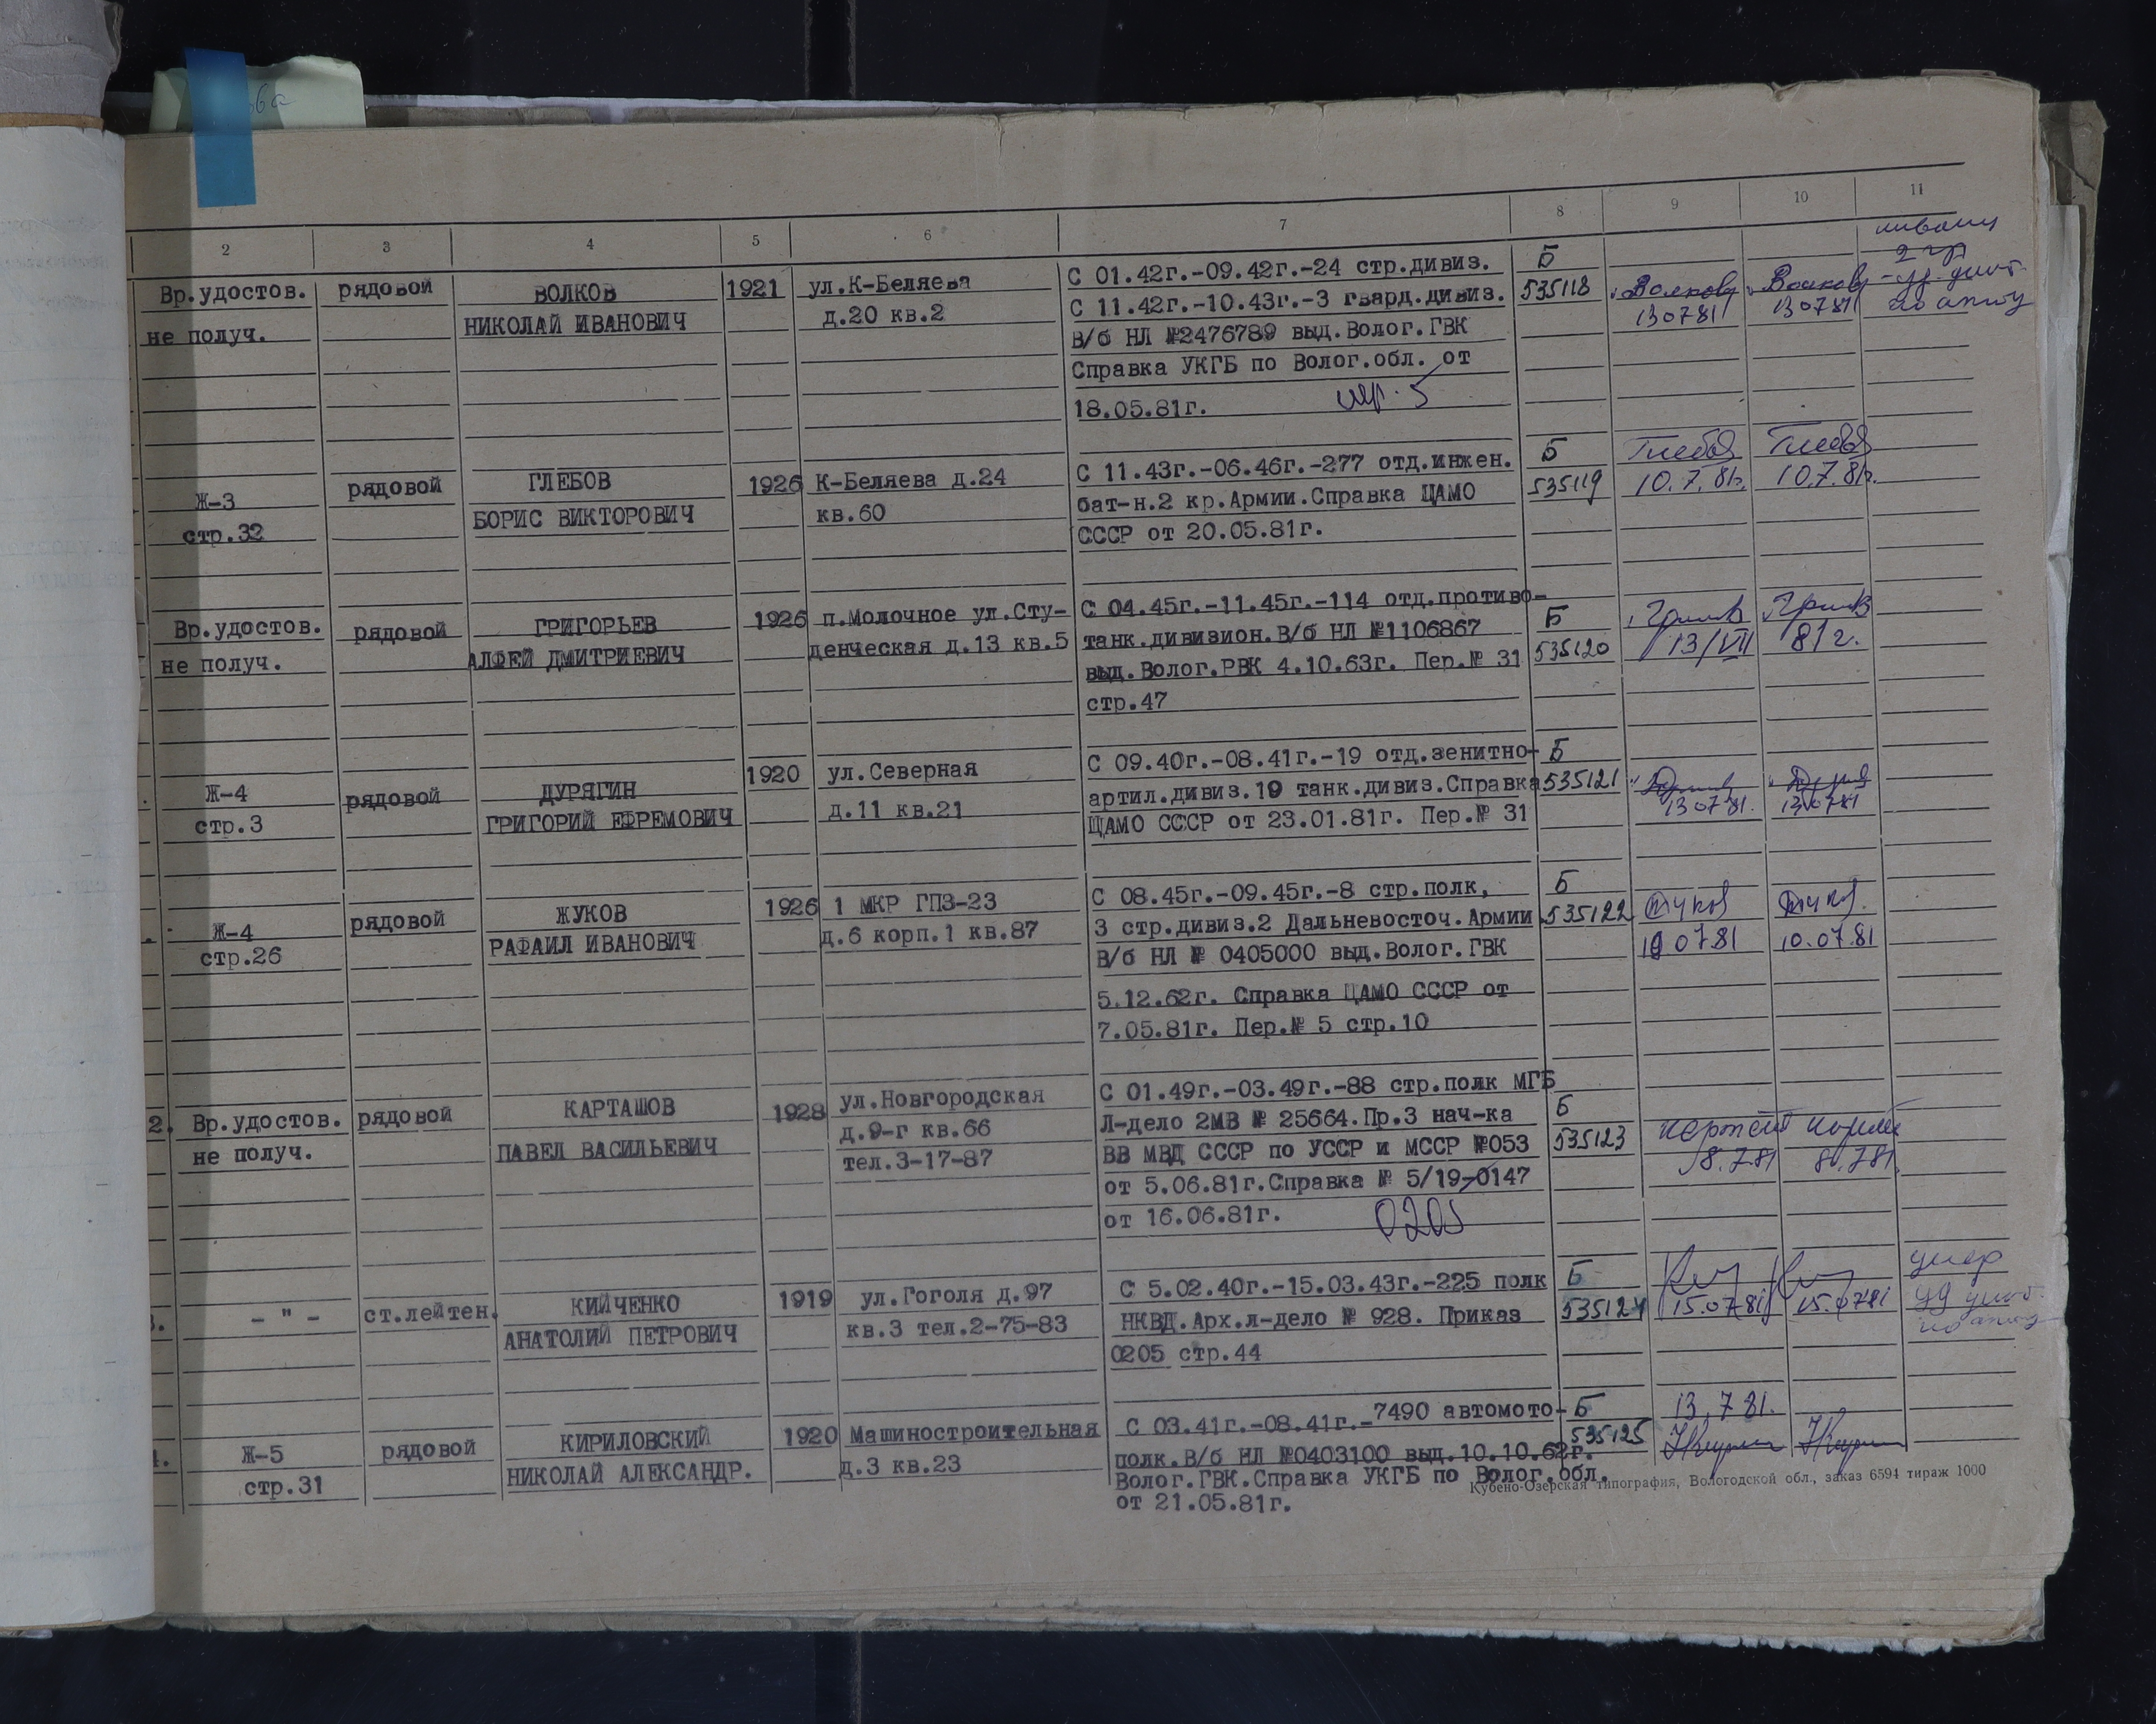 2 3 4 5 6 7 8 9 10 11
Вр.удостов. рядовой ВОЛКОВ 1921 ул.К-Беляева С 01.42г.-09.42г.-24 стр.дивиз. Б
не получ. НИКОЛАЙ ИВАНОВИЧ д.20 кв.2 С 11.42г.-10.43г.-3 гвард.дивиз. 535118 Волков Волков
В/б НЛ №2476789 выд.Волог.ГВК 130781 130781
Справка УКГБ по Волог.обл. от
18.05.81г.
Ж-3 рядовой ГЛЕБОВ 1926 К-Беляева д.24 С 11.43г.-06.46г.-277 отд.инжен. Б
стр.32 БОРИС ВИКТОРОВИЧ кв.60 бат-н.2 кр.Армии.Справка ЦАМО 535119 10.7.81г. 10.7.81г.
СССР от 20.05.81г.
Вр.удостов. рядовой ГРИГОРЬЕВ 1926 п.Молочное ул.Сту- С 04.45г.-11.45г.-114 отд.противо- Б
не получ. АЛФЕЙ ДМИТРИЕВИЧ денческая д.13 кв.5 танк.дивизион.В/б НЛ №1106867 535120 13/VII 81г.
выд.Волог.РВК 4.10.63г. Пер.№ 31
стр.47
Ж-4 рядовой ДУРЯГИН 1920 ул.Северная С 09.40г.-08.41г.-19 отд.зенитно- Б
стр.3 ГРИГОРИЙ ЕФРЕМОВИЧ д.11 кв.21 артил.дивиз.19 танк.дивиз.Справка 535121 130781. 130781
ЦАМО СССР от 23.01.81г. Пер.№ 31
Ж-4 рядовой ЖУКОВ 1926 1 МКР ГПЗ-23 С 08.45г.-09.45г.-8 стр.полк, Б
стр.26 РАФАИЛ ИВАНОВИЧ д.6 корп.1 кв.87 3 стр.дивиз.2 Дальневосточ.Армии 535122
В/б НЛ № 0405000 выд.Волог.ГВК 10.07.81 10.07.81
5.12.62г. Справка ЦАМО СССР от
7.05.81г. Пер.№ 5 стр.10
2. Вр.удостов. рядовой КАРТАШОВ 1928 ул.Новгородская С 01.49г.-03.49г.-88 стр.полк МГБ
не получ. ПАВЕЛ ВАСИЛЬЕВИЧ д.9-г кв.66 Л-дело 2МВ № 25664.Пр.3 нач-ка Б
тел.3-17-87 ВВ МВД СССР по УССР и МССР №053 535123 8.7.81 8.781.
от 5.06.81г.Справка № 5/19-0147
от 16.06.81г. 0205
3. - " - ст.лейтен. КИЙЧЕНКО 1919 ул.Гоголя д.97 С 5.02.40г.-15.03.43г.-225 полк Б умер
АНАТОЛИЙ ПЕТРОВИЧ кв.3 тел.2-75-83 НКВД.Арх.л-дело № 928. Приказ 535124 15.0781 15.0781
0205 стр.44
4. Ж-5 рядовой КИРИЛОВСКИЙ 1920 Машиностроительная С 03.41г.-08.41г.-7490 автомото- Б 13.781.
стр.31 НИКОЛАЙ АЛЕКСАНДР. д.3 кв.23 полк.В/б НЛ №0403100 выд.10.10.62г. 535125
Волог.ГВК.Справка УКГБ по Волог.обл.
от 21.05.81г.
Кубено-Озерская типография, Вологодской обл., заказ 6594 тираж 1000